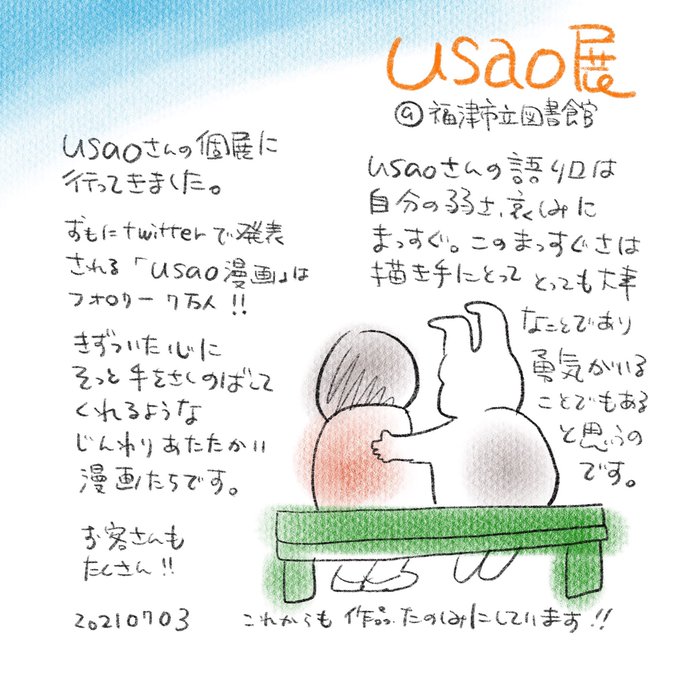 usao展
@福津市立図書館
usaoさんの個展に
行ってきました。
おもにtwitterで発表
される「usao漫画」は
フォロワー7万人!!
きずついた心に
そっと手をさしのばして
くれるような
じんわりあたたかい
漫画たちです。
お客さんも
たくさん!!
20210703
usaoさんの語り口は
自分の弱さ、哀しみに
まっすぐ。このまっすぐさは
描き手にとってとっても大事
なことであり
勇気がいる
ことでもある
と思うの
です。
これからも作品たのしみにしています!!